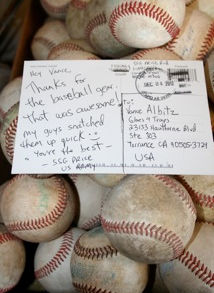 Hey Vance,
Thanks for
the baseball gear!
That was awesome!
my guys snatched
them up quick
"You're the Best"
- SSG Price
US Army
To:
Vance Albitz
Gloves 4 Troops
23133 Hawthorne Blvd
Ste 303
Torrance, CA 90505-3729
USA